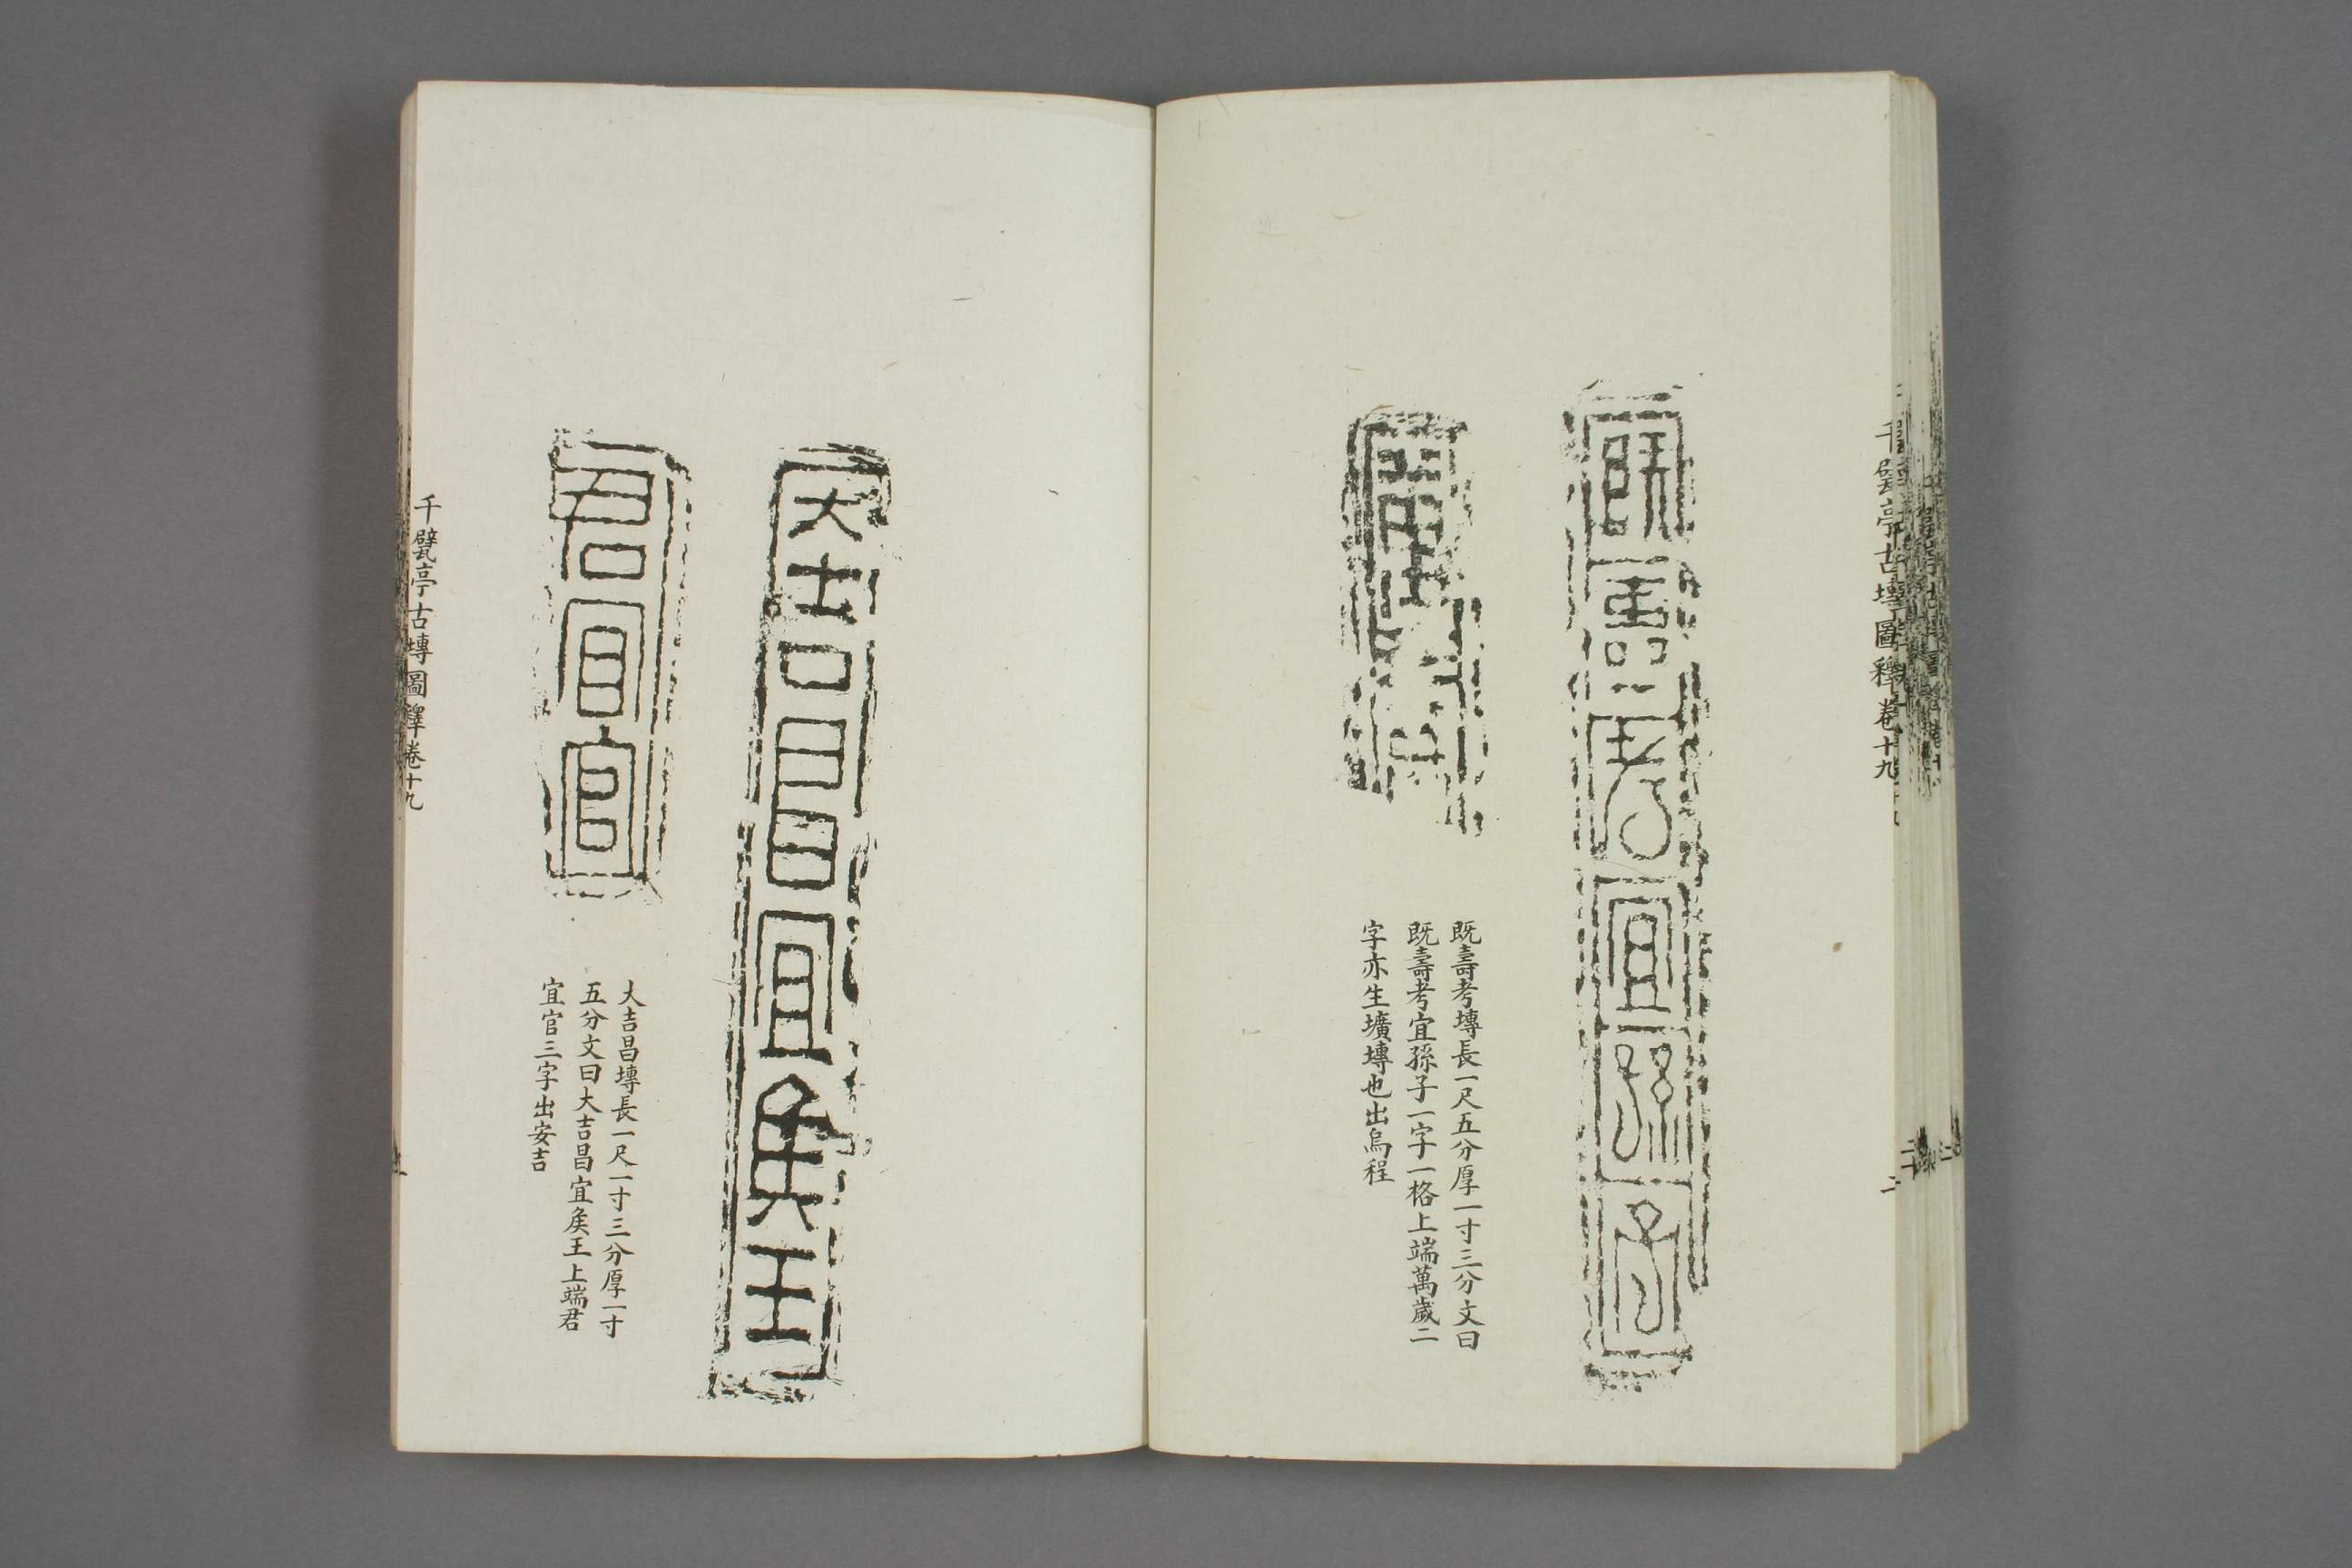 千甓亭古塼圖釋卷十九
二
既壽考宜孫子
萬歲
既壽考塼長一尺五分厚一寸三分文曰
既壽考宜孫子一字一格上端萬歲二
字亦生壙塼也出烏程
大吉昌宜矦王
君宜官
大吉昌塼長一尺一寸三分厚一寸
五分文曰大吉昌宜矦王上端君
宜官三字出安吉
千甓亭古塼圖釋卷十九